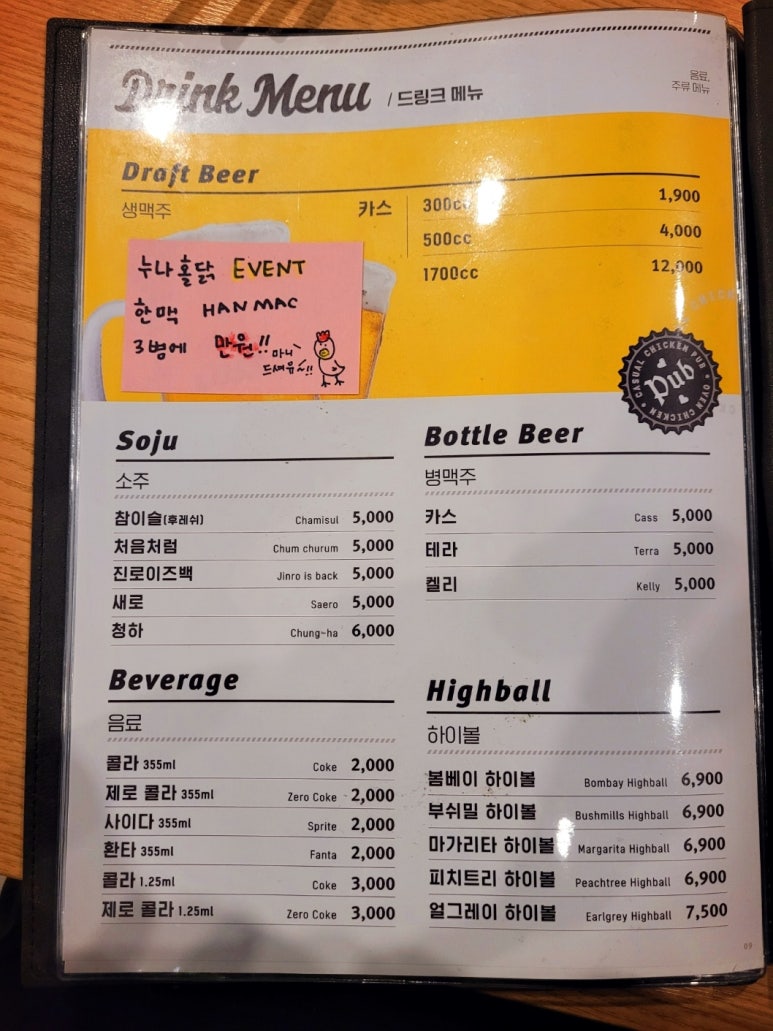 Drink Menu / 드링크 메뉴
음료,
주류 메뉴
Draft Beer
생맥주
카스
300cc 1,900
500cc 4,000
1700cc 12,000
누나홀닭 EVENT
한맥 HANMAC
3병에 만원!!
마니
드셔유~!!
CASUAL CHICKEN PUB
Pub
OVEN CHICKEN
Soju
소주
참이슬(후레쉬) Chamisul 5,000
처음처럼 Chum churum 5,000
진로이즈백 Jinro is back 5,000
새로 Saero 5,000
청하 Chung~ha 6,000
Bottle Beer
병맥주
카스 Cass 5,000
테라 Terra 5,000
켈리 Kelly 5,000
Beverage
음료
콜라 355ml Coke 2,000
제로 콜라 355ml Zero Coke 2,000
사이다 355ml Sprite 2,000
환타 355ml Fanta 2,000
콜라 1.25ml Coke 3,000
제로 콜라 1.25ml Zero Coke 3,000
Highball
하이볼
봄베이 하이볼 Bombay Highball 6,900
부쉬밀 하이볼 Bushmills Highball 6,900
마가리타 하이볼 Margarita Highball 6,900
피치트리 하이볼 Peachtree Highball 6,900
얼그레이 하이볼 Earlgrey Highball 7,500
09